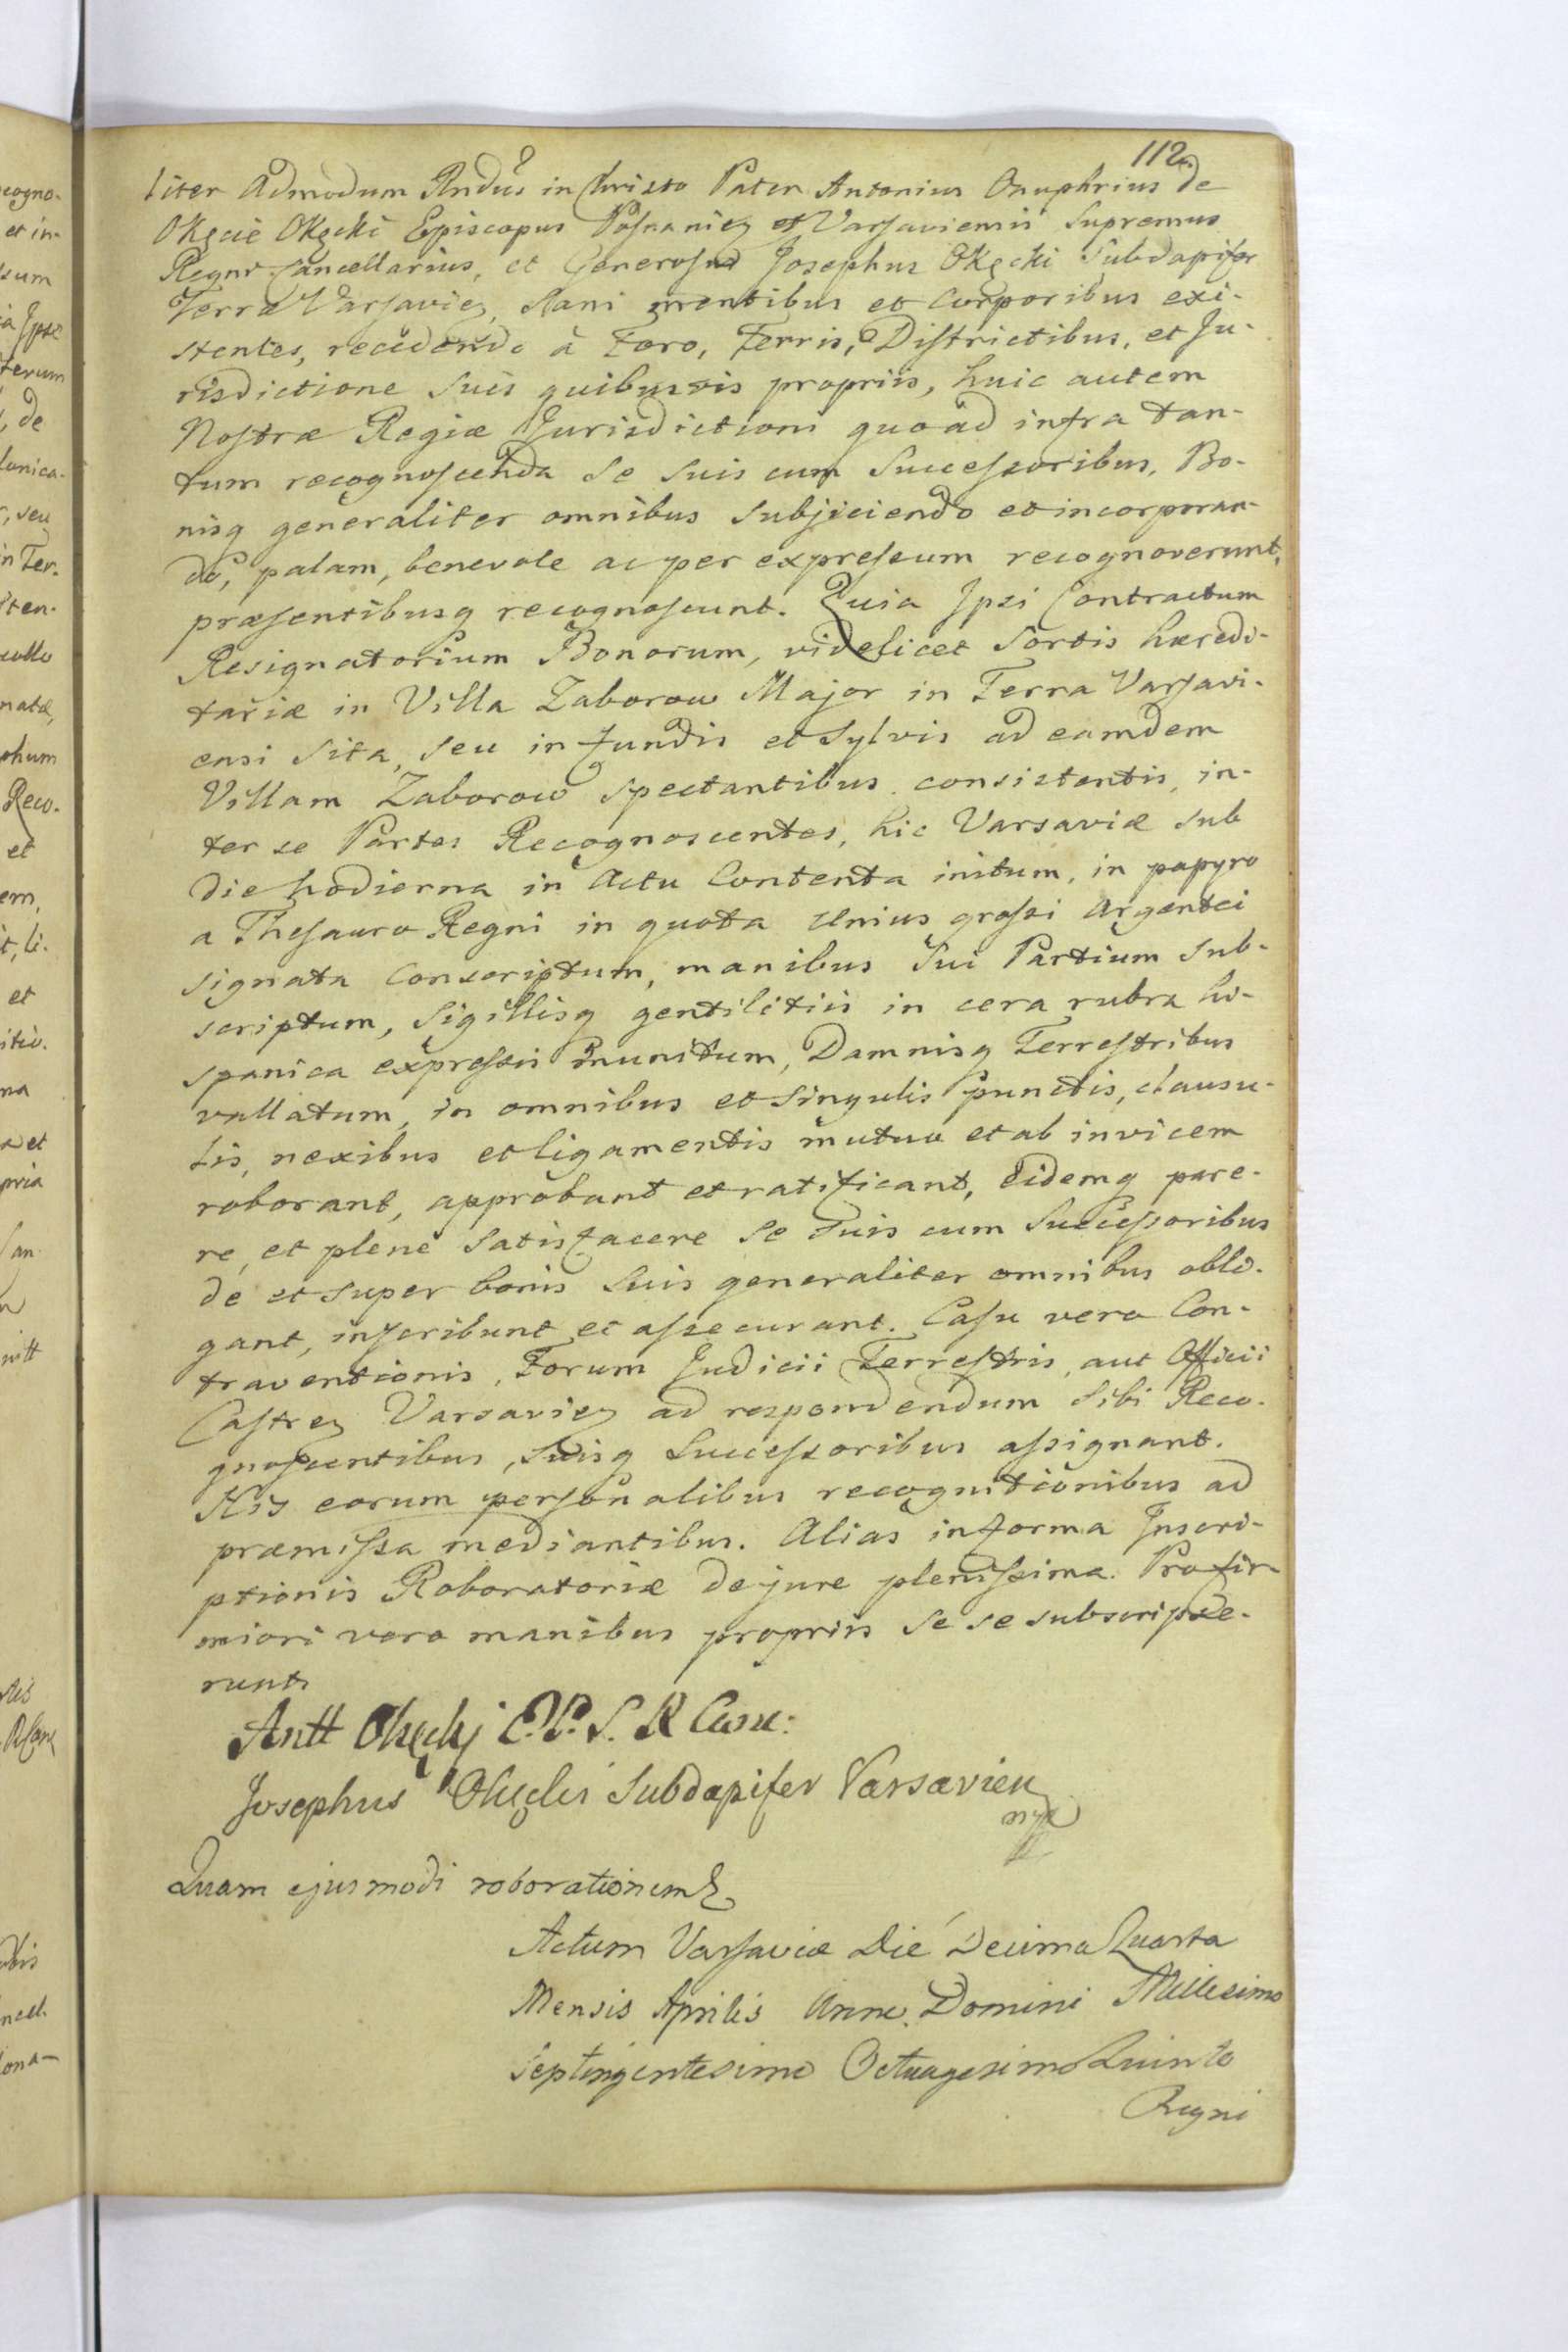 112.
liter Admodum Rndus in Christo Pater Antonius Onuphrius de
Okęcie Okęcki Episcopus Posnanien et Varsaviensis Supremus
Regni Cancellarius, et Generosus Josephus Okęcki Subdapifer
Terræ Varsavien, Sani mentibus et Corporibus exi-
stentes, recedendo à Foro, Terris, Districtibus, et Ju-
risdictione Suis quibusvis propriis, huic autem
Nostræ Regiæ Jurisdictioni quoad infra tan-
tum recognoscenda Se Suis cum Successoribus, Bo-
nisq generaliter omnibus Subjiciendo et incorporan-
do, palam, benevole ac per expressum recognoverunt,
præsentibusq recognoscunt. Quia Ipsi Contractum
Resignatorium Bonorum, videlicet Sortis hæredi-
tariæ in Villa Zaborow Major in Terra Varsavi-
ensi Sita, Seu in fundis et Sylvis ad eamdem
Villam Zaborow Spectantibus consistentis, in-
ter se Partes Recognoscentes, hic Varsaviæ sub
die hodierna in Actu Contenta initum, in papyro
a Thesauro Regni in quota Unius grossi Argentei
Signata Conscriptum, manibus Sui Partium Sub-
scriptum, Sigillisq gentilitiis in cera rubra hi-
spanica expressis munitum, Damnisq Terrestribus
vallatum, in omnibus et Singulis punctis, clausu-
lis, nexibus et ligamentis mutuo et ab invicem
roborant, approbant et ratificant, Eidemq pare-
re, et plene Satisfacere Se Suis cum Successoribus
de et Super bonis Suis generaliter omnibus obli-
gant, inscribunt et assecurant. Casu vero Con-
traventionis, Forum Judicii Terrestris, aut Officii
Castren Varsavien ad respondendum Sibi Reco-
gnoscentibus, Suisq Successoribus assignant.
His eorum personalibus recognitionibus ad
præmissa mediantibus. Alias in forma Inscri-
ptionis Roboratoriæ de jure plenissima. Pro fir-
miori vero manibus propriis Se se subscripse-
runt
Antt Okęcki E. P. S. R Canc:
Josephus Okęcki Subdapifer Varsavien
mp
Quam ejusmodi roborationem
Actum Varsaviæ Die Decima Quarta
Mensis Aprilis Anno Domini Millesimo
Septingentesimo Octuagesimo Quinto
Regni